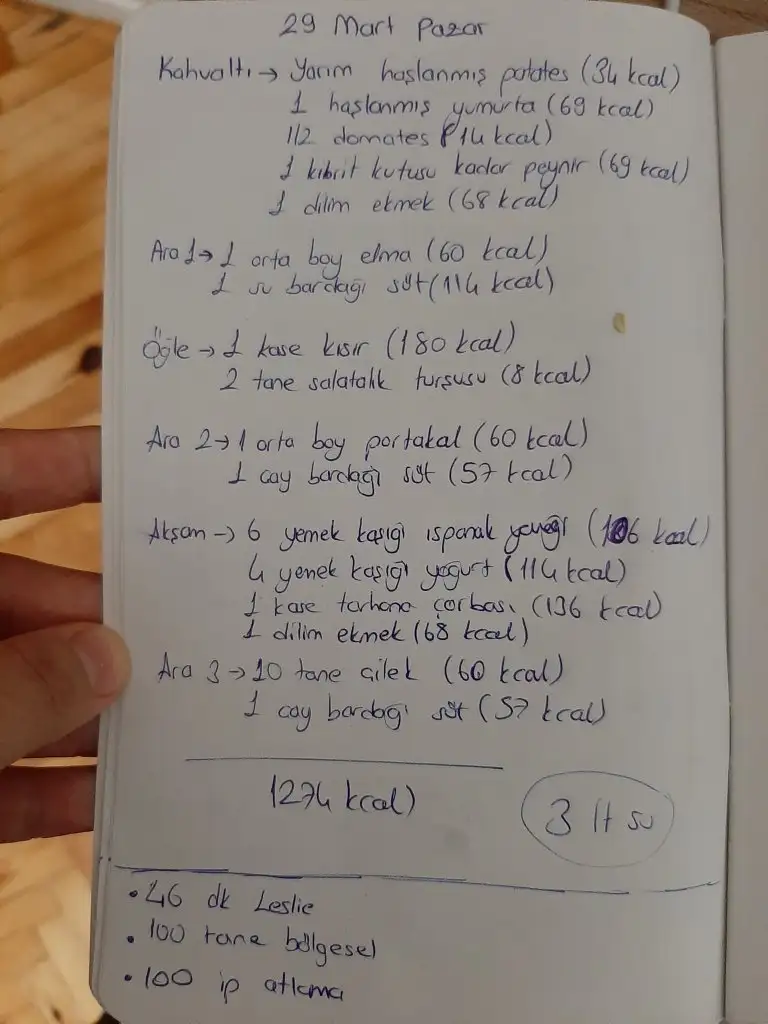 29 Mart Pazar
Kahvaltı → Yarım haşlanmış patates (34 kcal)
1 haşlanmış yumurta (69 kcal)
1/2 domates (14 kcal)
1 kibrit kutusu kadar peynir (69 kcal)
1 dilim ekmek (68 kcal)
Ara 1 → 1 orta boy elma (60 kcal)
1 su bardağı süt (114 kcal)
Öğle → 1 kase kısır (180 kcal)
2 tane salatalık turşusu (8 kcal)
Ara 2 → 1 orta boy portakal (60 kcal)
1 çay bardağı süt (57 kcal)
Akşam → 6 yemek kaşığı ıspanak yemeği (106 kcal)
4 yemek kaşığı yoğurt (114 kcal)
1 kase tarhana çorbası (136 kcal)
1 dilim ekmek (68 kcal)
Ara 3 → 10 tane çilek (60 kcal)
1 çay bardağı süt (57 kcal)
1274 kcal)
3 lt su
• 46 dk Leslie
• 100 tane bölgesel
• 100 ip atlama